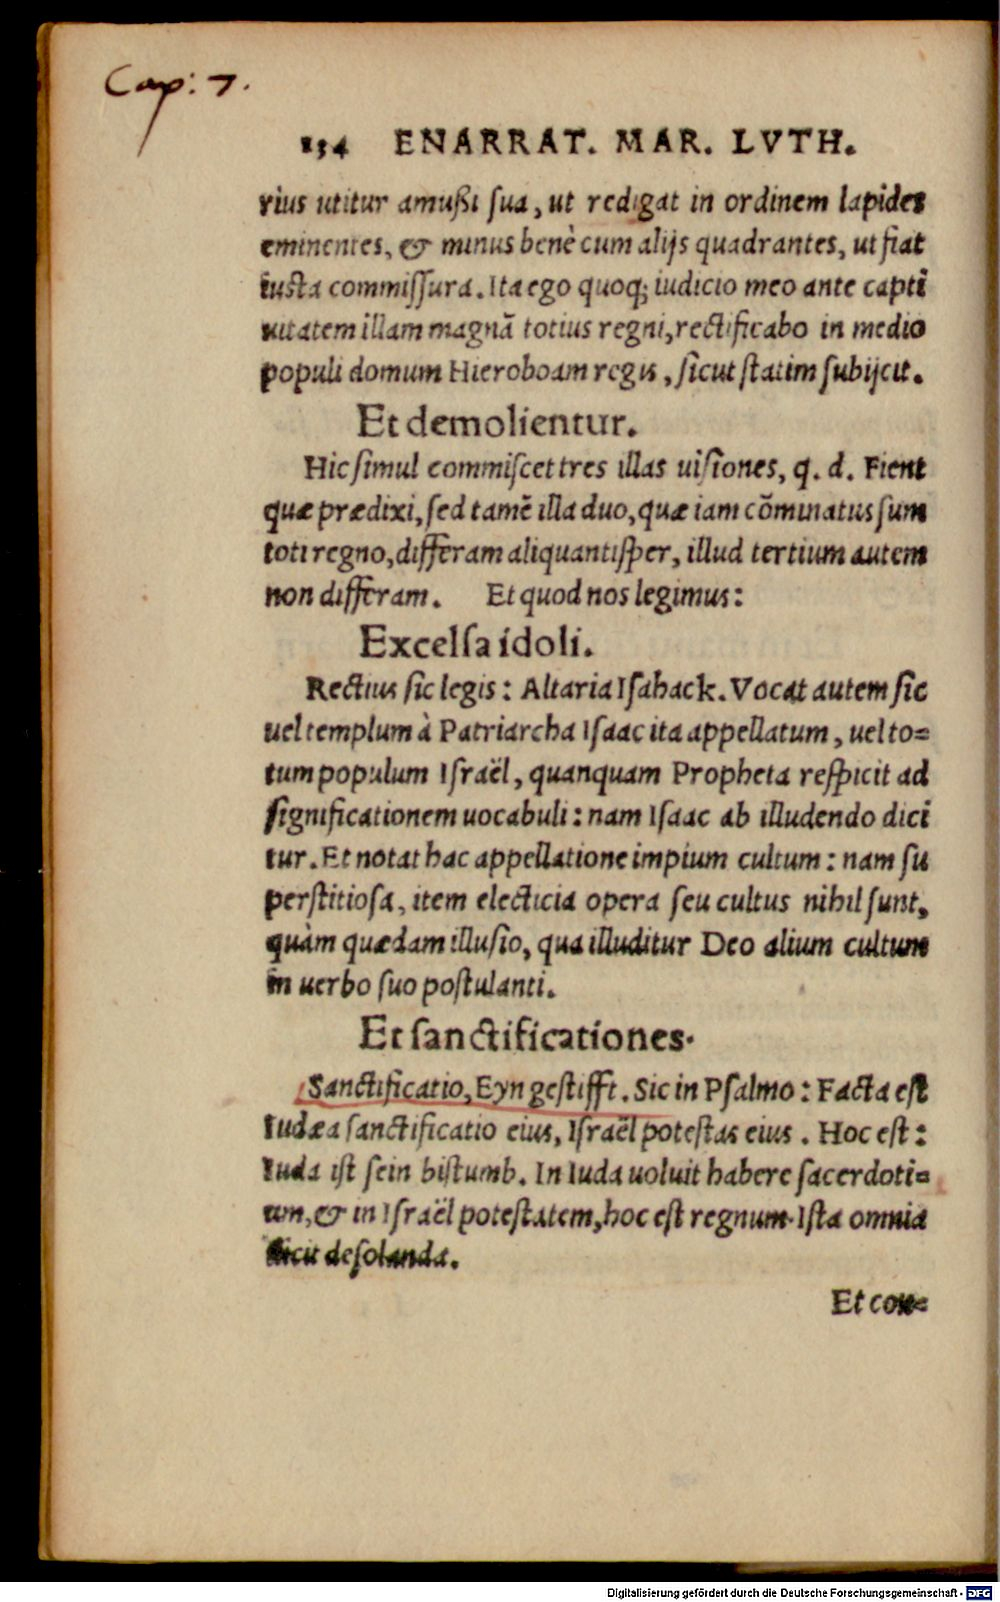 Cap: 7.
134 ENARRAT. MAR. LVTH.
rius utitur amußi sua, ut redigat in ordinem lapides
eminentes, & minus benè cum alijs quadrantes, ut fiat
iusta commissura. Ita ego quoq; iudicio meo ante capti
uitatem illam magnã totius regni, rectificabo in medio
populi domum Hieroboam regis, sicut statim subijcit.
Et demolientur.
Hic simul commiscet tres illas uisiones, q. d. Fient
quæ prædixi, sed tamẽ illa duo, quæ iam cõminatus sum
toti regno, differam aliquantisper, illud tertium autem
non differam. Et quod nos legimus:
Excelsa idoli.
Rectius sic legis: Altaria Isahack. Vocat autem sic
uel templum à Patriarcha Isaac ita appellatum, uel to=
tum populum Israël, quanquam Propheta respicit ad
significationem uocabuli: nam Isaac ab illudendo dici
tur. Et notat hac appellatione impium cultum: nam su
perstitiosa, item electicia opera seu cultus nihil sunt,
quàm quædam illusio, qua illuditur Deo alium cultum
in uerbo suo postulanti.
Et sanctificationes.
Sanctificatio, Eyn gestifft. Sic in Psalmo: Facta est
Iudæa sanctificatio eius, Israël potestas eius. Hoc est:
Iuda ist sein bistumb. In Iuda uoluit habere sacerdoti=
um, & in Israël potestatem, hoc est regnum. Ista omnia
dicit desolanda.
Et con=
Digitalisierung gefördert durch die Deutsche Forschungsgemeinschaft - DFG